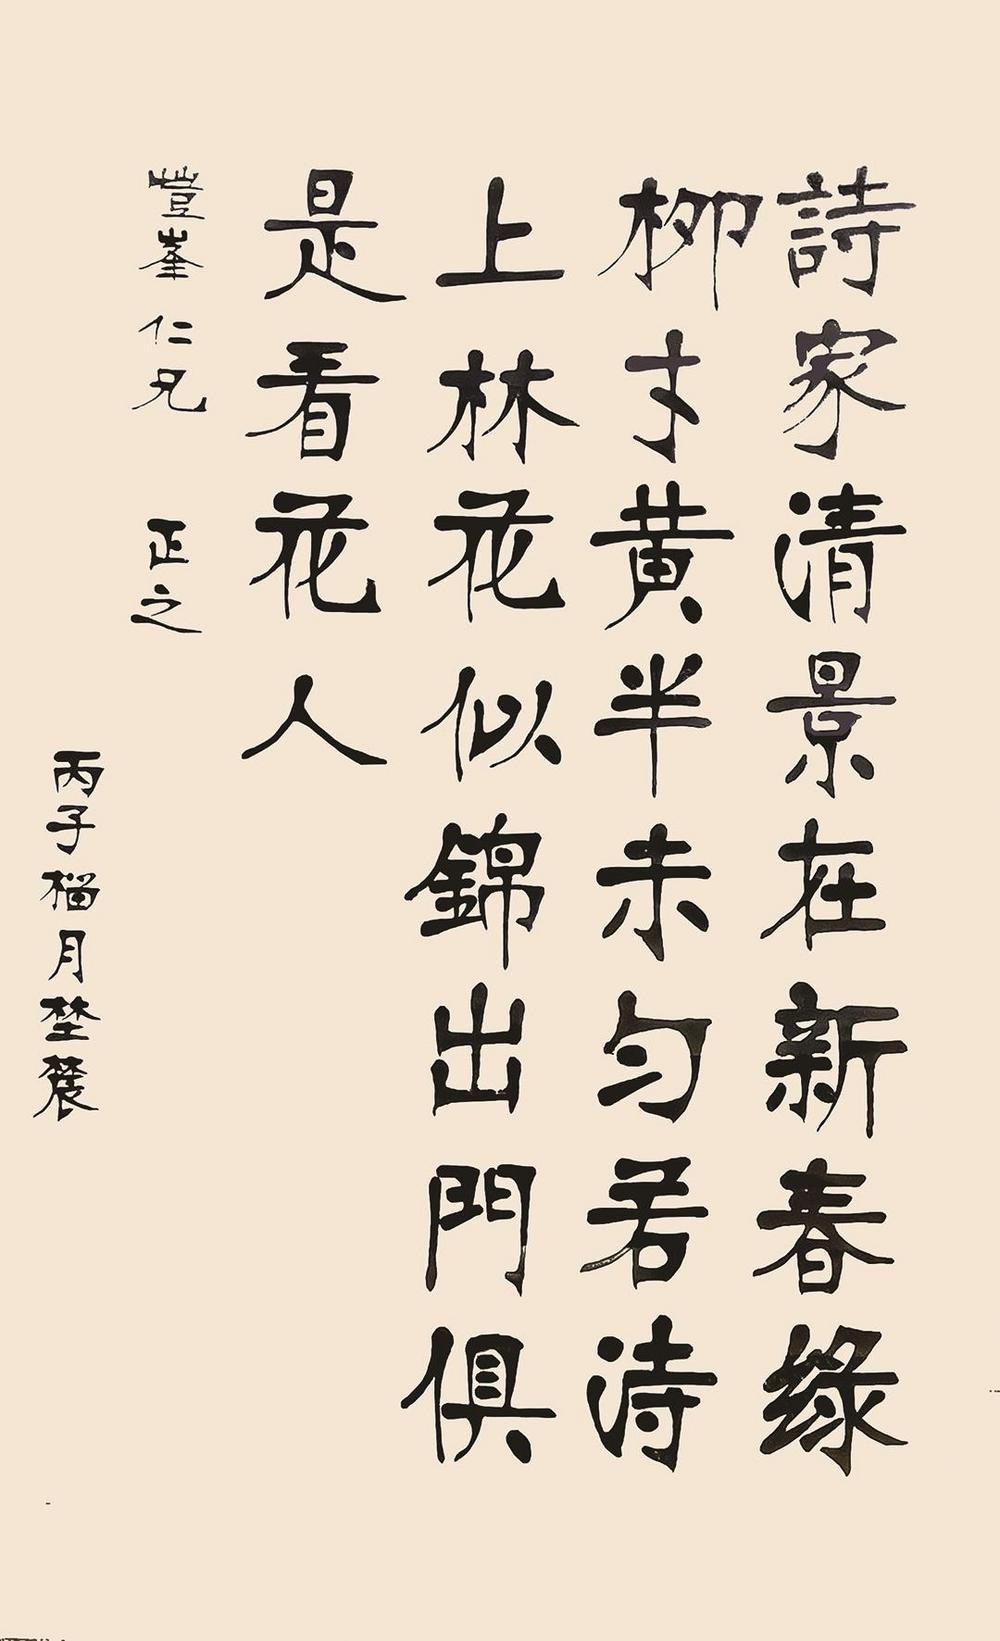 詩家清景在新春綠
柳才黄半未匀若诗
上林花似錦出門俱
是看花人
峯仁兄 正之
丙子榴月埜農